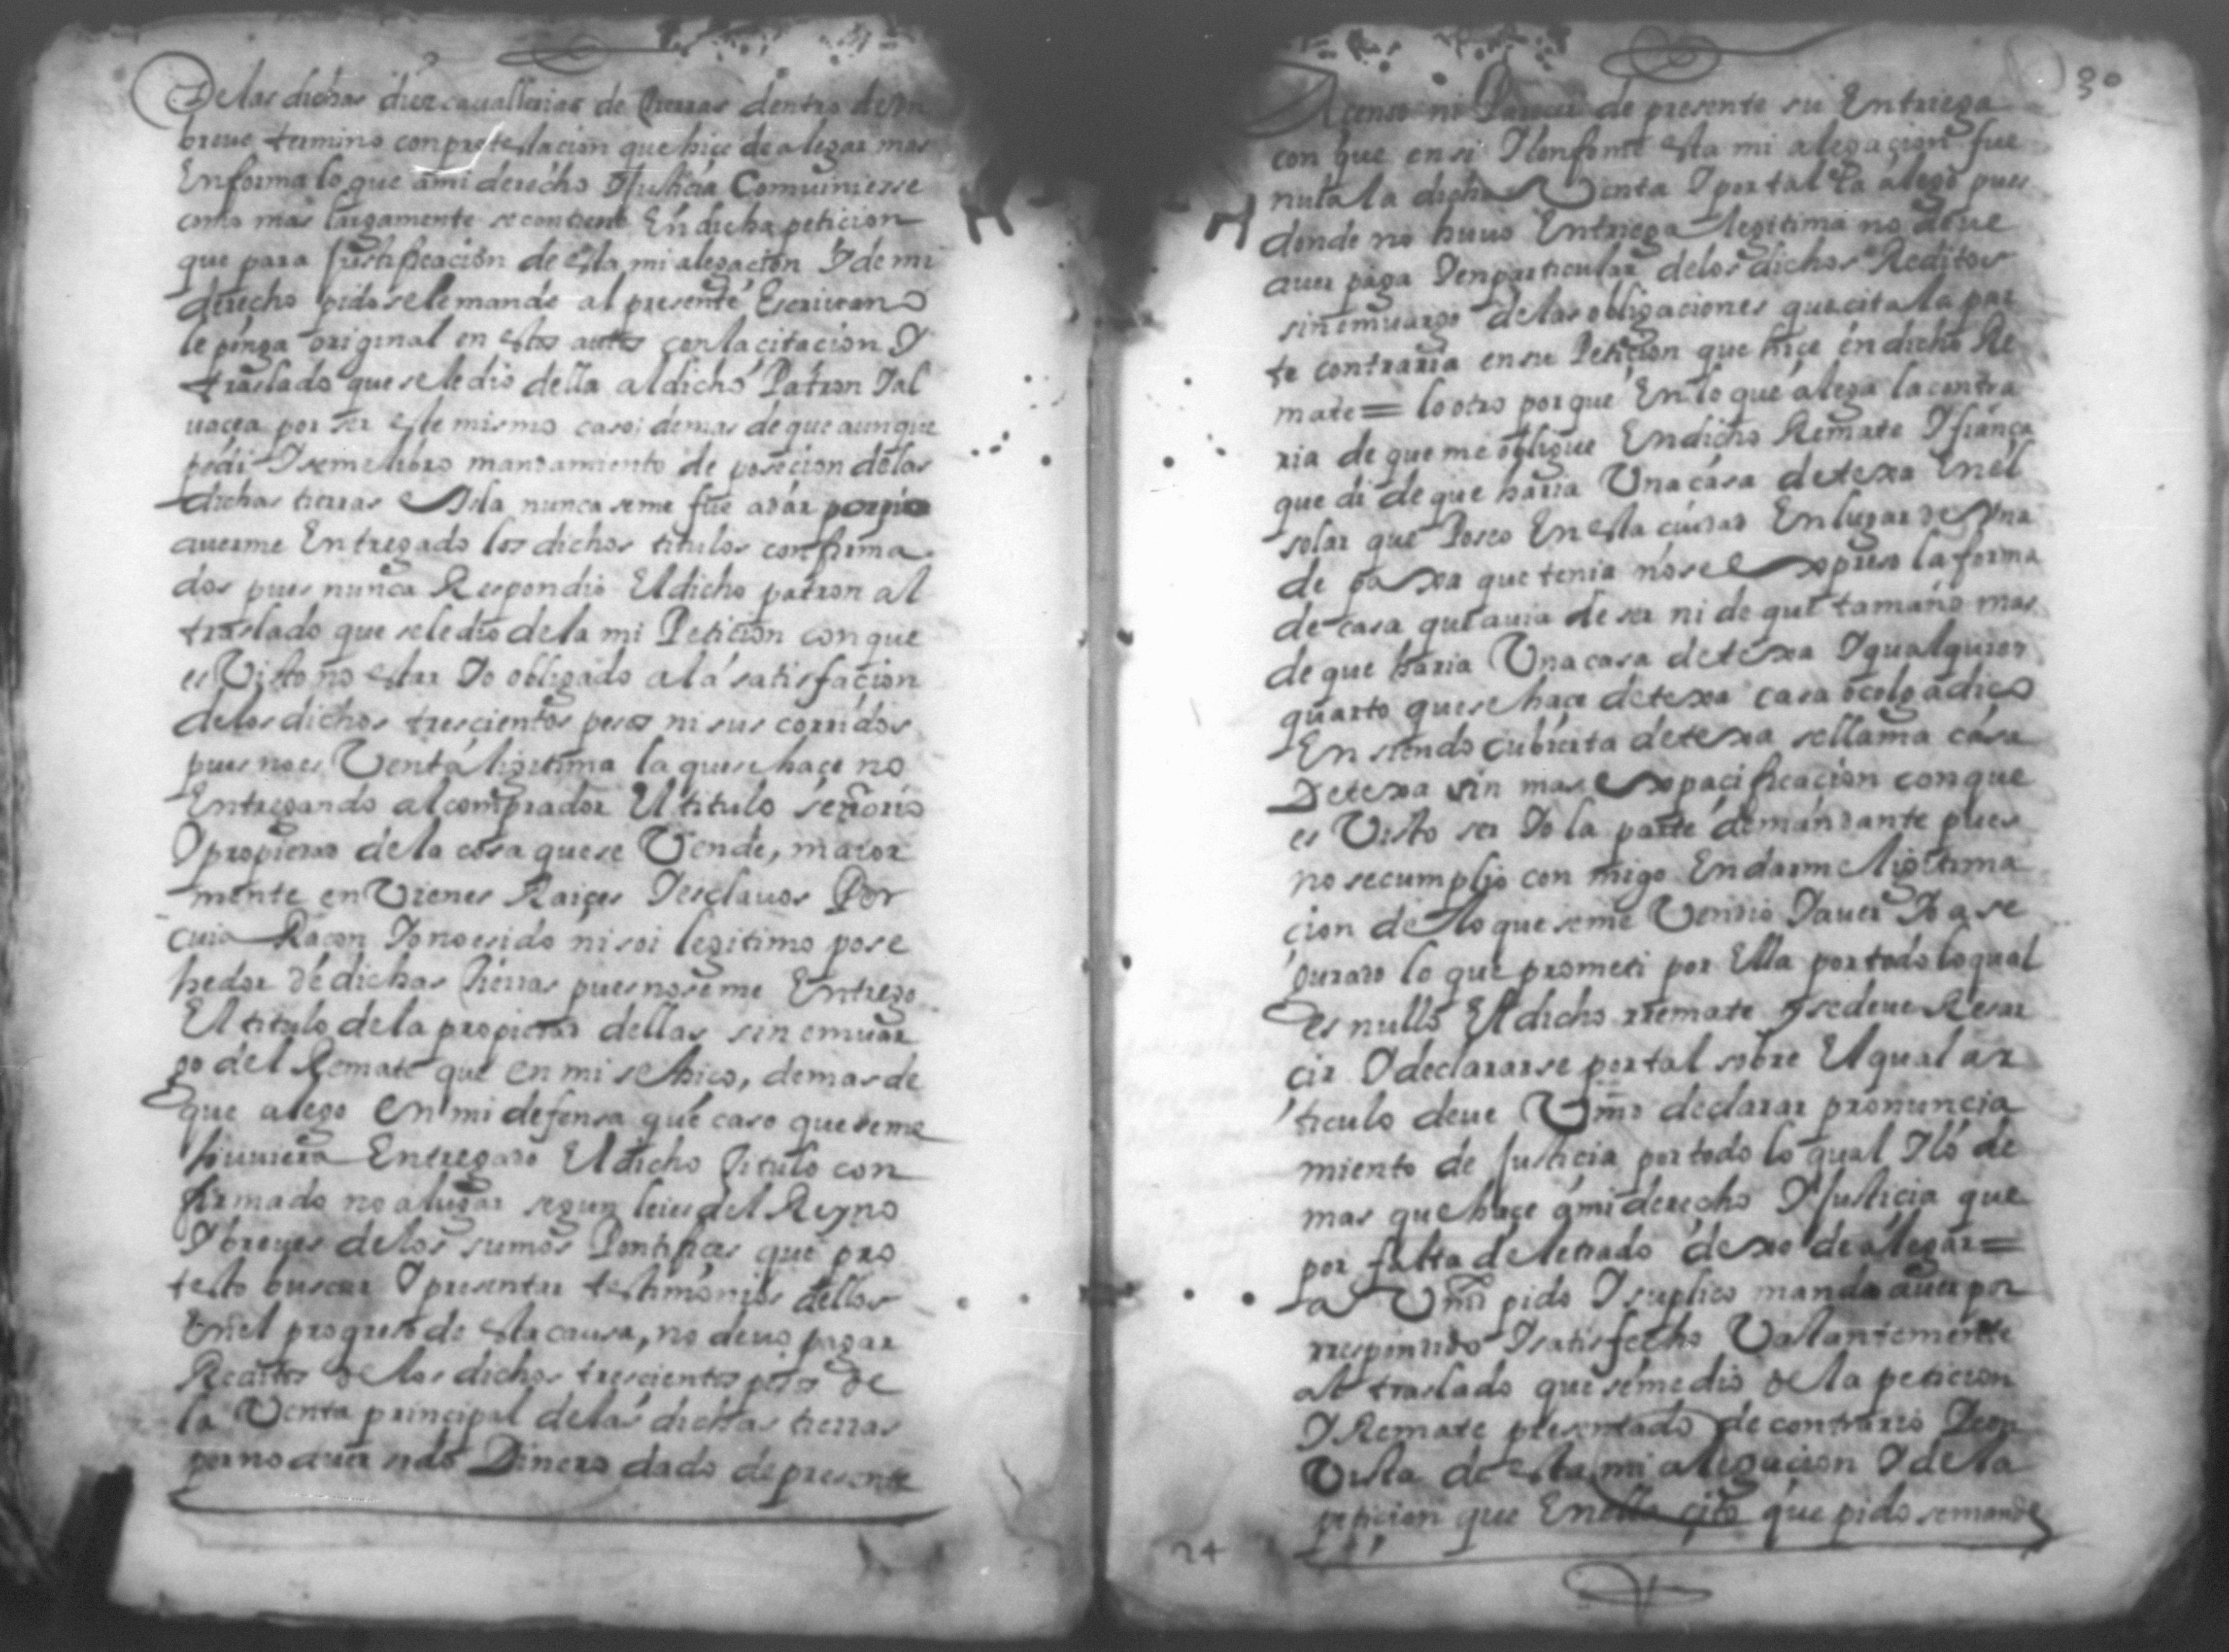 De las dichas diez cauallerias de tierras dentro de Vn
breue termino con protestacion que hice de alegar mas
En forma lo que a mi derecho Y Justicia Comuiniesse
como mas largamente se contiene En dicha peticion
que para Justificacion de esta mi alegacion Y de mi
derecho pido se le mande al presente Escriuano
le ponga original en estos autos con la citacion Y
traslado que se le dio della al dicho Patron Y al
uacea por ser este mismo caso; demas de que aunque
pedi Y se me libro mandamiento de posecion de las
dichas tierras E Isla nunca se me fue a dar
auerme Entregado los dichos titulos confirma
dos pues nunca Respondio El dicho patron al
traslado que se le dio de la mi Peticion con que
es Visto no estar Yo obligado a la satisfacion
de los dichos trescientos pesos ni sus corridos
pues no es Venta ligitima la que se hace no
Entregando al comprador El titulo señorio
Y propiedad de la cosa que se Vende, maior
mente en Vienes Raiçes Y esclauos Por
cuia Raçon Yo no e sido ni soi legitimo pose
hedor de dichas tierras pues no se me Entrego
El titulo de la propiedad dellas sin emuar
go del Remate que en mi se hiço, demas de
que alego en mi defensa que caso que se me
huuiera Entregado El dicho titulo con
firmado no a lugar segun leies del Reyno
Y breues de los sumos Pontifices que pro
testo buscar Y presentar testimonios dellos
En el progreso de esta causa, no deuo pagar
Reditos de los dichos trescientos pesos de
la Venta principal de las dichas tierras
por no auer sido Dinero dado de presente
30
A censo ni Parecer de presente su Entriega
con que en si Y Conforme esta mi alegaçion fue
nula la dicha Venta Y por tal la alego pues
donde no huuo Entriega legitima no deue
auer paga Y en particular de los dichos Reditos
sin emuargo de las obligaciones que cita la par
te contraria en su Peticion que hiçe en dicho Re
mate = lo otro porque En lo que alega la contra
ria de que me obligue En dicho Remate Y fiança
que di de que haria Vna casa de texa En el
solar que Poseo En esta ciudad En lugar de Vna
de paxa que tenia no se Expreso la forma
de casa que auia de ser ni de que tamaño mas
de que haria Vna casa de texa Y qualquier
quarto que se hace de texa casa o colgadiço
En siendo cubierta de texa se llama casa
De texa sin mas Expacificacion con que
es Visto ser Yo la parte demandante pues
no se cumplio con migo En darme ligitima
cion de lo que se me Vendio Y auer Yo a se
gurado lo que prometi por Ella por todo lo qual
es nullo El dicho rremate y se deue Resar
cir Y declararse por tal sobre El qual ar
ticulo deue Vmd declarar pronuncia
miento de Justicia por todo lo qual Y lo de
mas que haçe a mi derecho Y Justicia que
por falta de letrado dexo de alegar =
a Vmd pido Y suplico mande auer por
rrespondido Y satisfecho Vastantemente
al traslado que se me dio de la peticion
Y Remate presentado de contrario Y con
Vista de esta mi alegacion Y de la
peticion que En ella çito que pido se mande
24